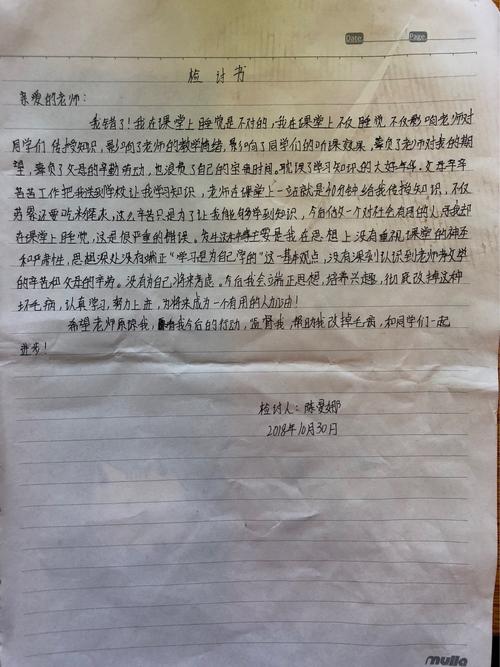 Date Page
检讨书
亲爱的老师：
我错了！我在课堂上睡觉是不对的，我在课堂上不仅睡觉，不仅影响老师对
同学们传授知识，影响了老师的教学情绪，影响了同学们的听课效果，辜负了老师对我的期
望，辜负了父母的辛勤劳动，也浪费了自己的宝贵时间。耽误了学习知识的大好年华。父母辛辛
苦苦工作把我送到学校让我学习知识，老师在课堂上一站就是40分钟给我传授知识，不仅
劳累还要吃粉笔灰，这么辛苦只是为了让我能够学到知识，今后做一个对社会有用的人，而我却
在课堂上睡觉，这是很严重的错误。发生这件事主要是我在思想上没有重视课堂的神圣
和严肃性，思想深处没有端正“学习是为自己学的”这一基本观点，没有深刻认识到老师教学
的辛苦和父母的辛劳。没有为自己将来考虑。今后我会端正思想，培养兴趣，彻底改掉这种
坏毛病，认真学习，努力上进，为将来成为一个有用的人加油！
希望老师原谅我，看我今后的行动，监督我，帮助我改掉毛病，和同学们一起
进步！
检讨人：陈曼娜
2018年10月30日
mulla